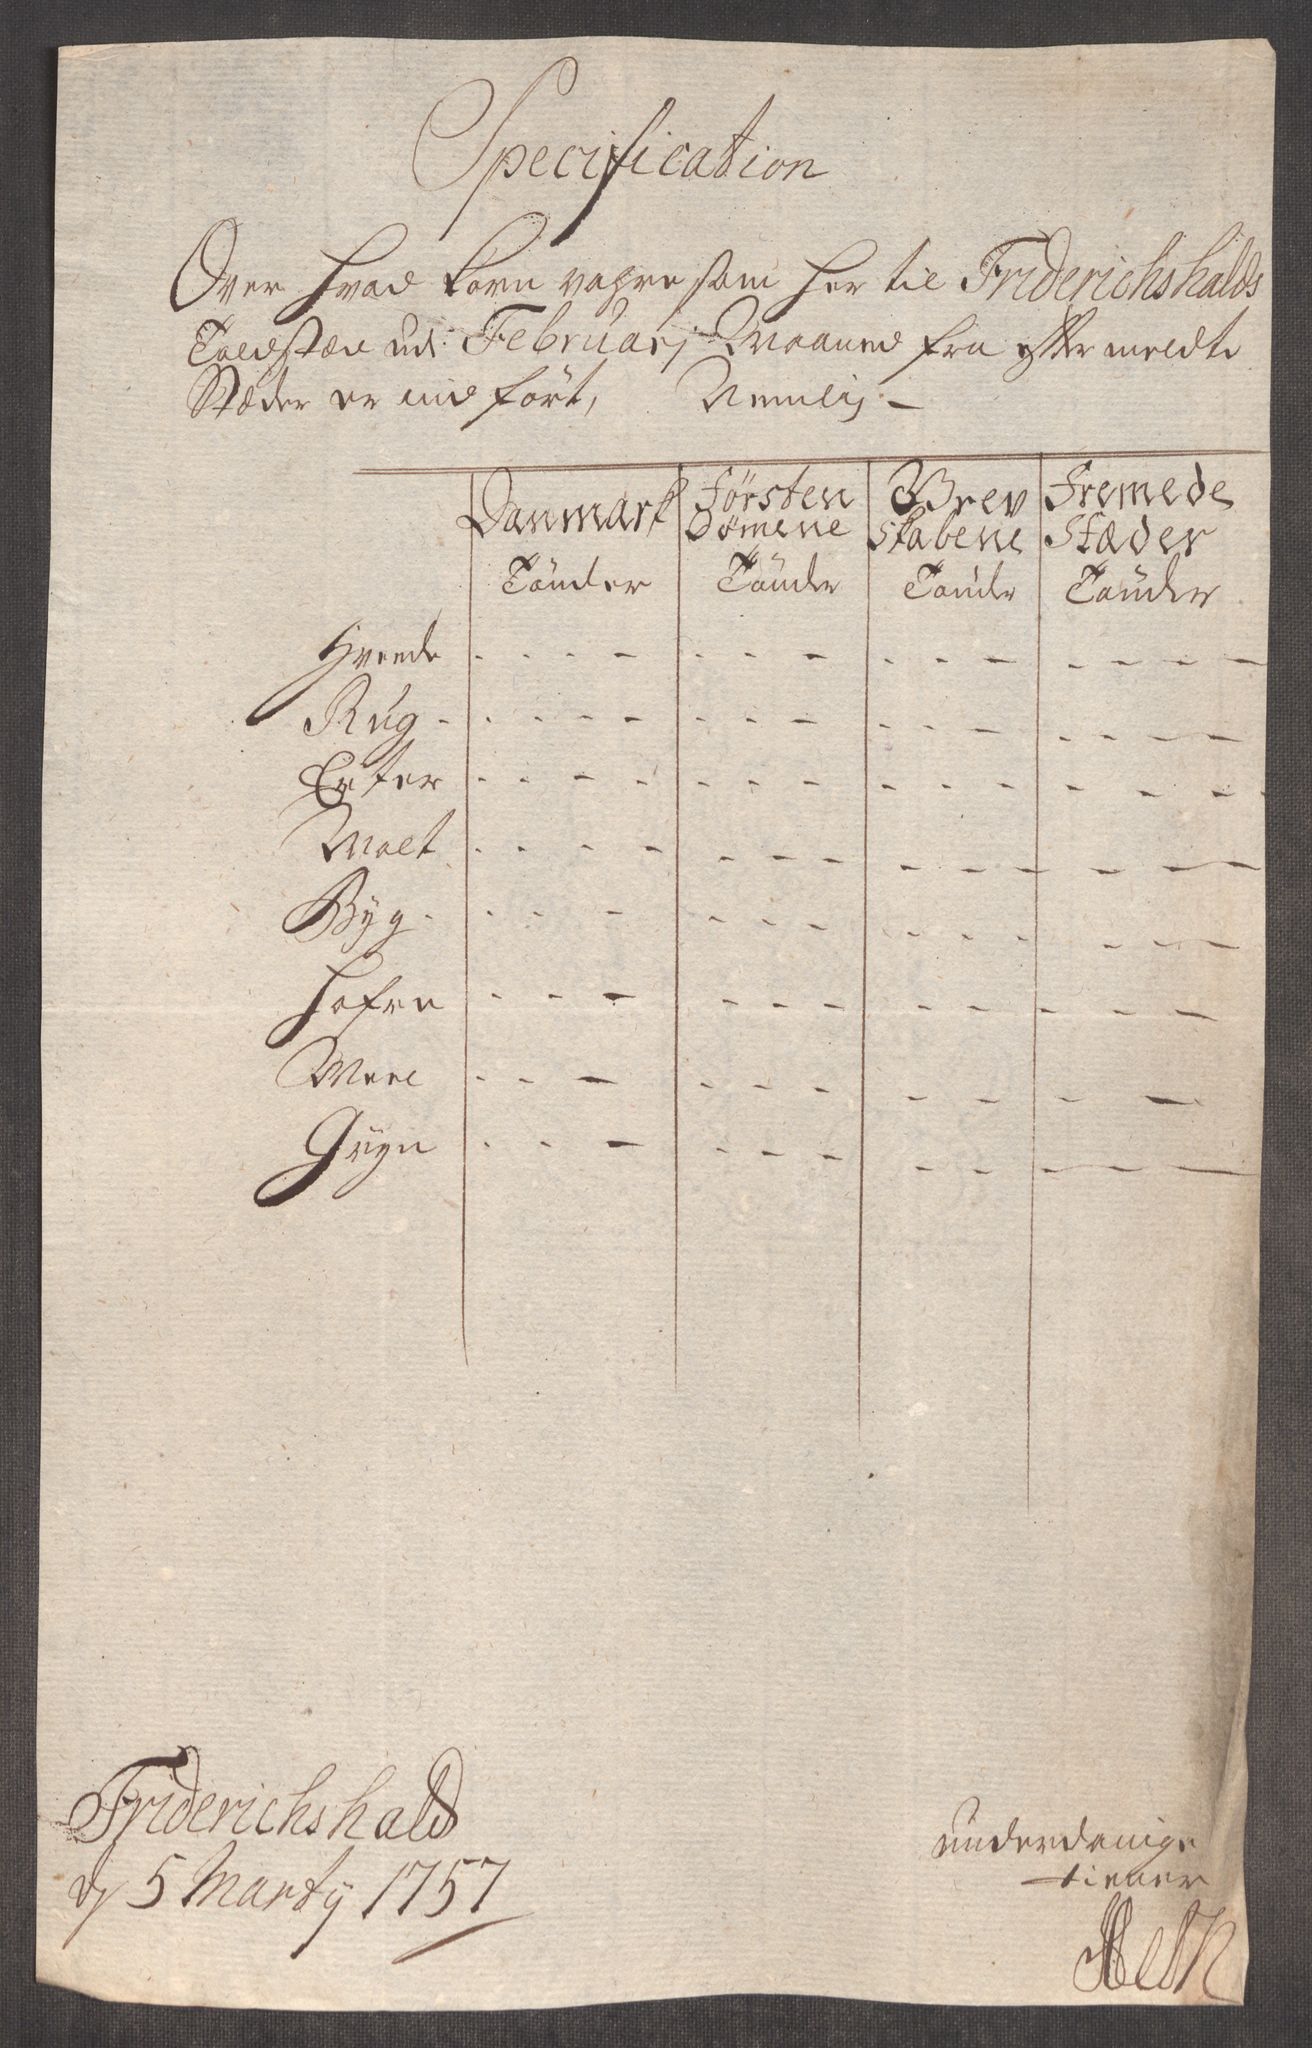 Specification
Over hvad Korn vahre som her til Friderichshalds
Toldstæd udi Februarj Maaned fra efter meldte
Stæder er indført, Nemlig –
Danmark Førsten Grev Fremede
Dømene Skabene Stæder
Tönder Tönder Tönder Tönder
Hvede - - - - - - - - - - - - - -
Rug - - - - - - - - - - - - - - -
Erter - - - - - - - - - - - - - -
Malt - - - - - - - - - - - - - -
Byg - - - - - - - - - - - - -
Hafre - - - - - - - - - - - - -
Meel - - - - - - - - - - -
Gryn - - - - - - - - - - -
Friderichshald
d 5 Marty 1757
underdanige
tiener